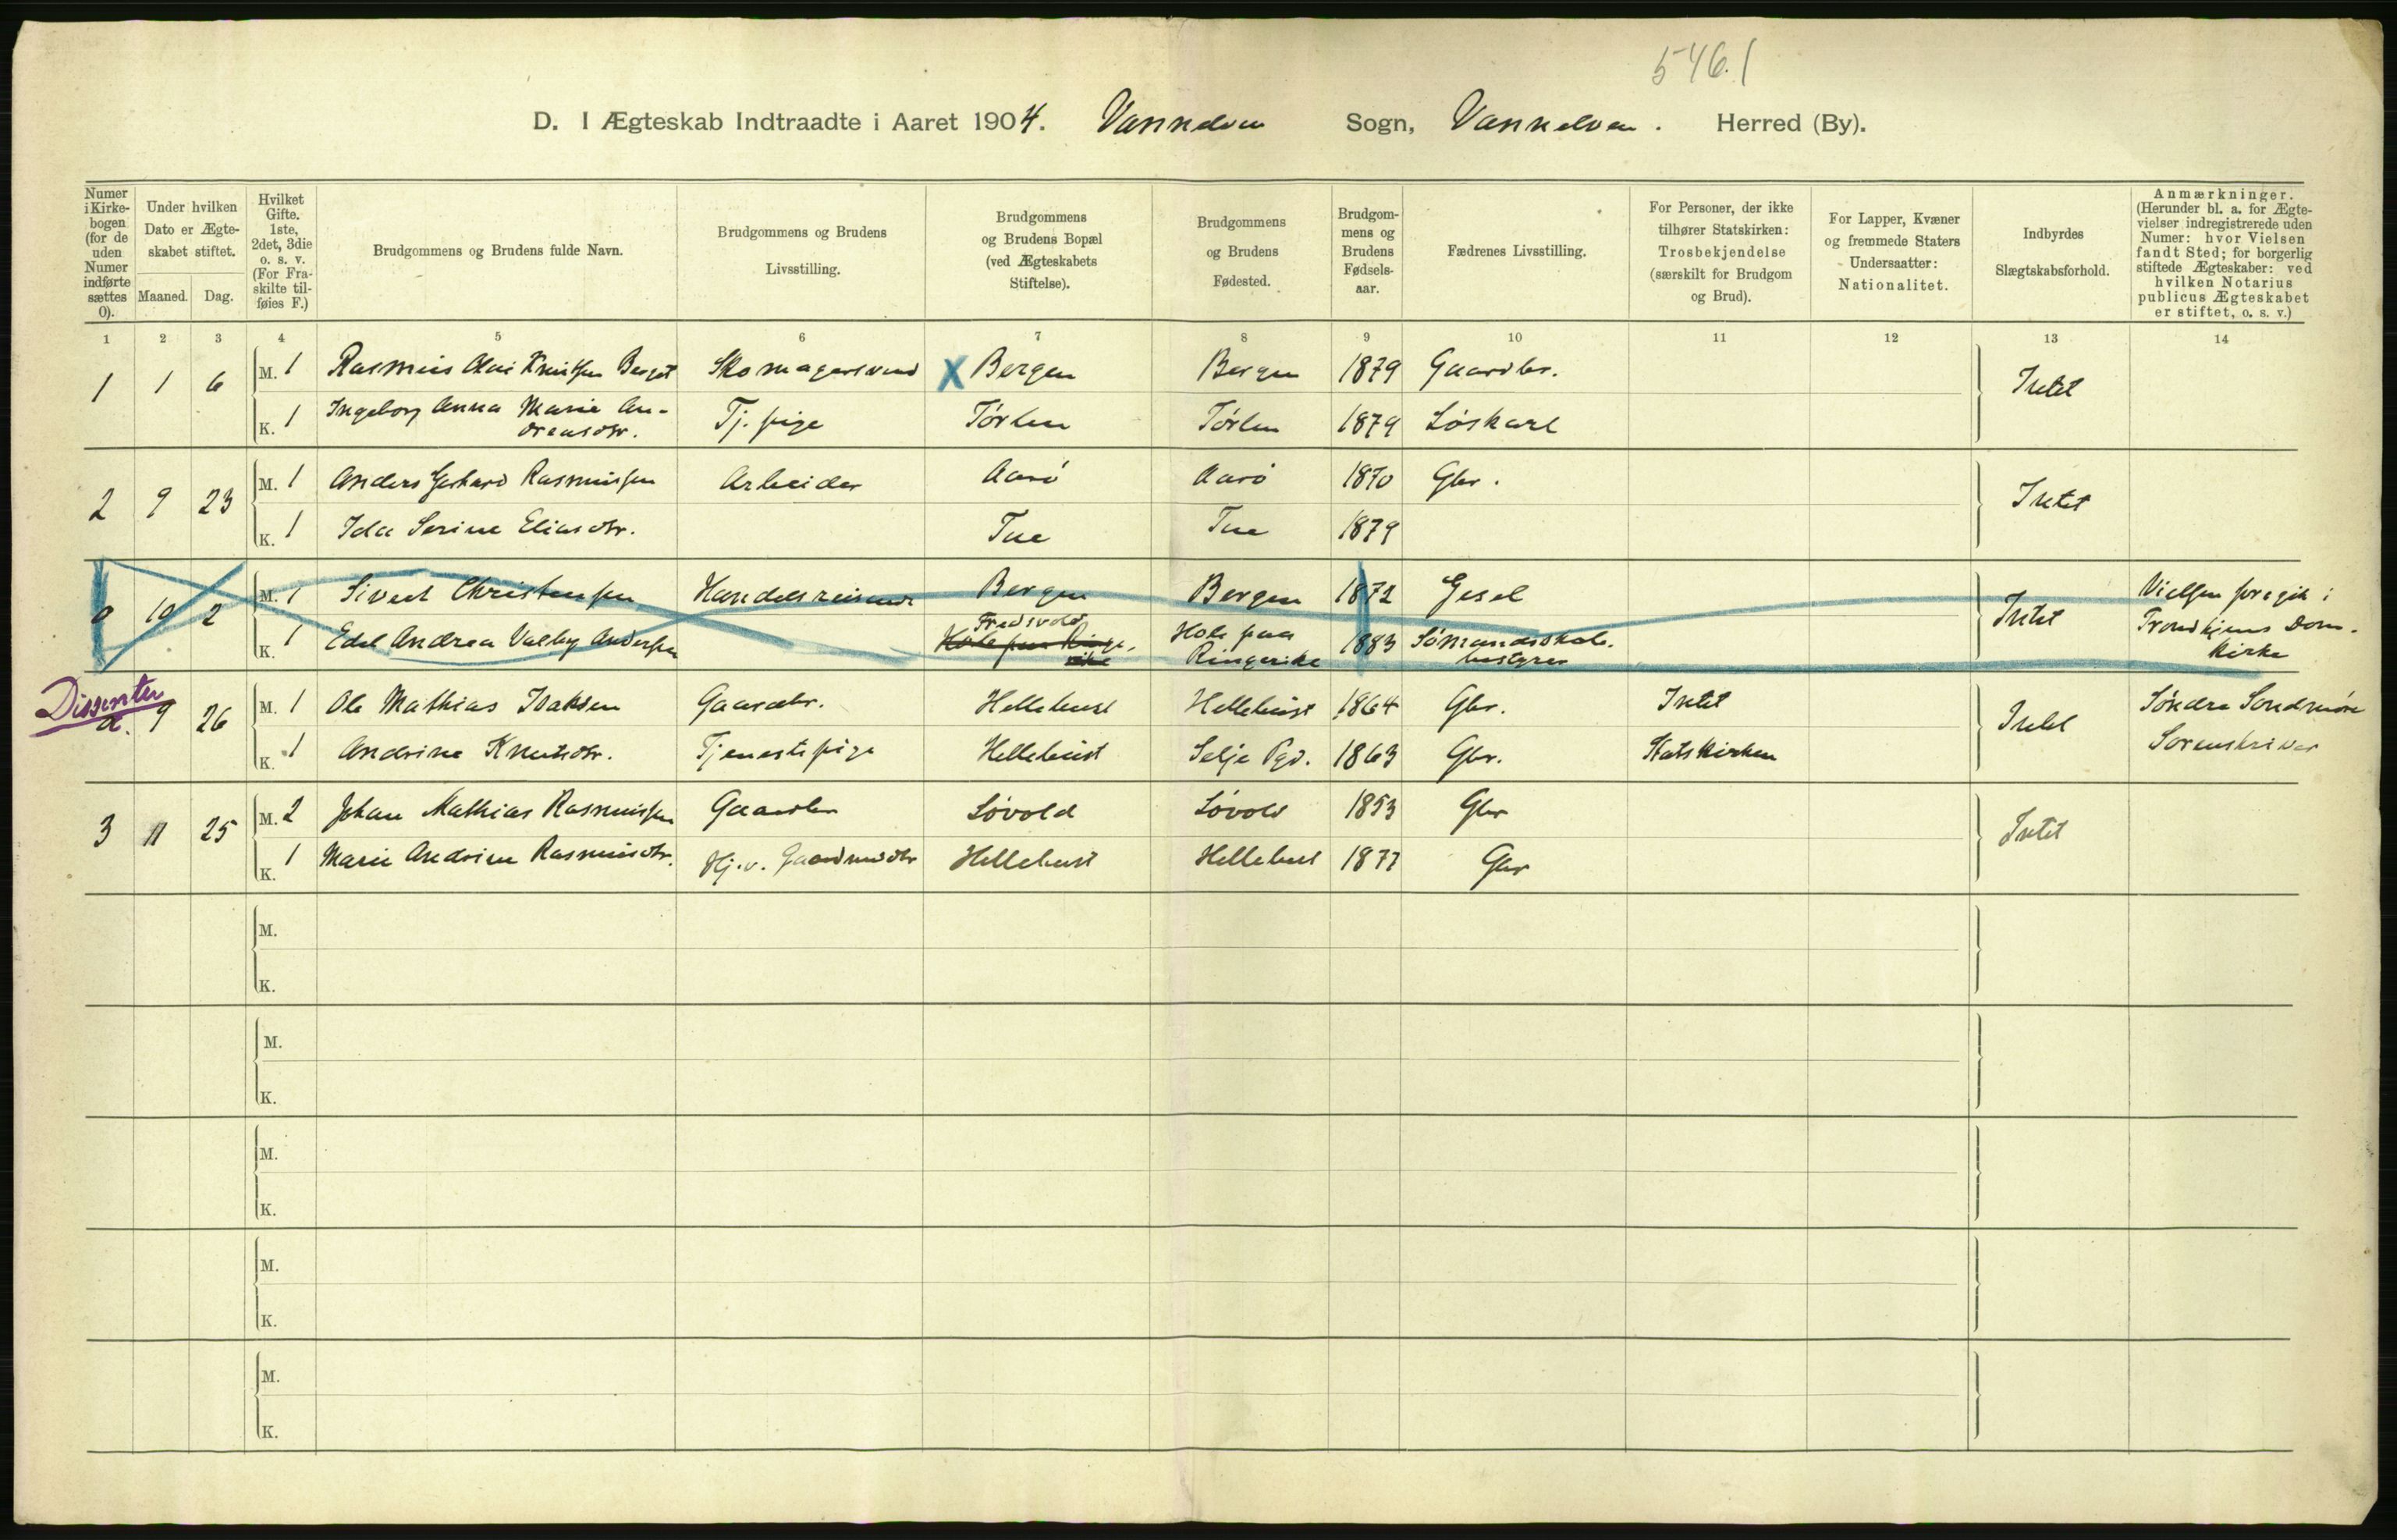 546.1
D. I Ægteskab Indtraadte i Aaret 1904. Vannelven Sogn, Vannelven. Herred (By).
Numer i Kirke-bogen (for de uden Numer indførte sættes 0).
Under hvilken Dato er Ægte-skabet stiftet.
Maaned. Dag.
Hvilket Gifte. 1ste, 2det, 3die o. s. v. (For Fra-skilte til-føies F.)
Brudgommens og Brudens fulde Navn.
Brudgommens og Brudens Livsstilling.
Brudgommens og Brudens Bopæl (ved Ægteskabets Stiftelse).
Brudgommens og Brudens Fødested.
Brudgom-mens og Brudens Fødsels-aar.
Fædrenes Livsstilling.
For Personer, der ikke tilhører Statskirken: Trosbekjendelse (særskilt for Brudgom og Brud).
For Lapper, Kvæner og fremmede Staters Undersaatter: Nationalitet.
Indbyrdes Slægtskabsforhold.
Anmærkninger. (Herunder bl. a. for Ægte-vielser indregistrerede uden Numer: hvor Vielsen fandt Sted; for borgerlig stiftede Ægteskaber: ved hvilken Notarius publicus Ægteskabet er stiftet, o. s. v.)
1 2 3 4 5 6 7 8 9 10 11 12 13 14
1 1 6 M. 1 Rasmus Olai Knutsen Berget Skomagersvend X Bergen Bergen 1879 Gaardbr. Intet
K. 1 Ingeborg Anna Marie An-
dreasdtr. Tj. pige Tørlen Tørlen 1879 Løskarl
2 9 23 M. 1 Anders Gerhard Rasmussen Arbeider Aarø Aarø 1870 Gbr. Intet
K. 1 Ida Serine Eliasdtr. Tue Tue 1879
0 10 2 M. 1 Sivert Christensen Handelsreisende Bergen Bergen 1872 Gesel Intet Vielsen foregik i
Tronhjems Dom-
kirke
K. 1 Edel Andrea Valby Andersen Fredsvold
Hole paa Ringe-
rike Hole paa
Ringerike 1883 Sømandsskole-
bestyrer
Dissenter
d. 9 26 M. 1 Ole Mathias Isaksen Gaardbr. Hellebust Hellebust 1864 Gbr. Intet Intet Søndre Søndmøre
Sorenskriver
K. 1 Andrine Knutsdtr. Tjenestepige Hellebust Selje Pgd. 1863 Gbr. Statskirken
3 11 25 M. 2 Johan Mathias Rasmussen Gaardbr Løvold Løvold 1853 Gbr Intet
K. 1 Marie Andrine Rasmusdtr. Hj.v. Gaardmdtr Hellebust Hellebust 1877 Gbr
M.
K.
M.
K.
M.
K.
M.
K.
M.
K.